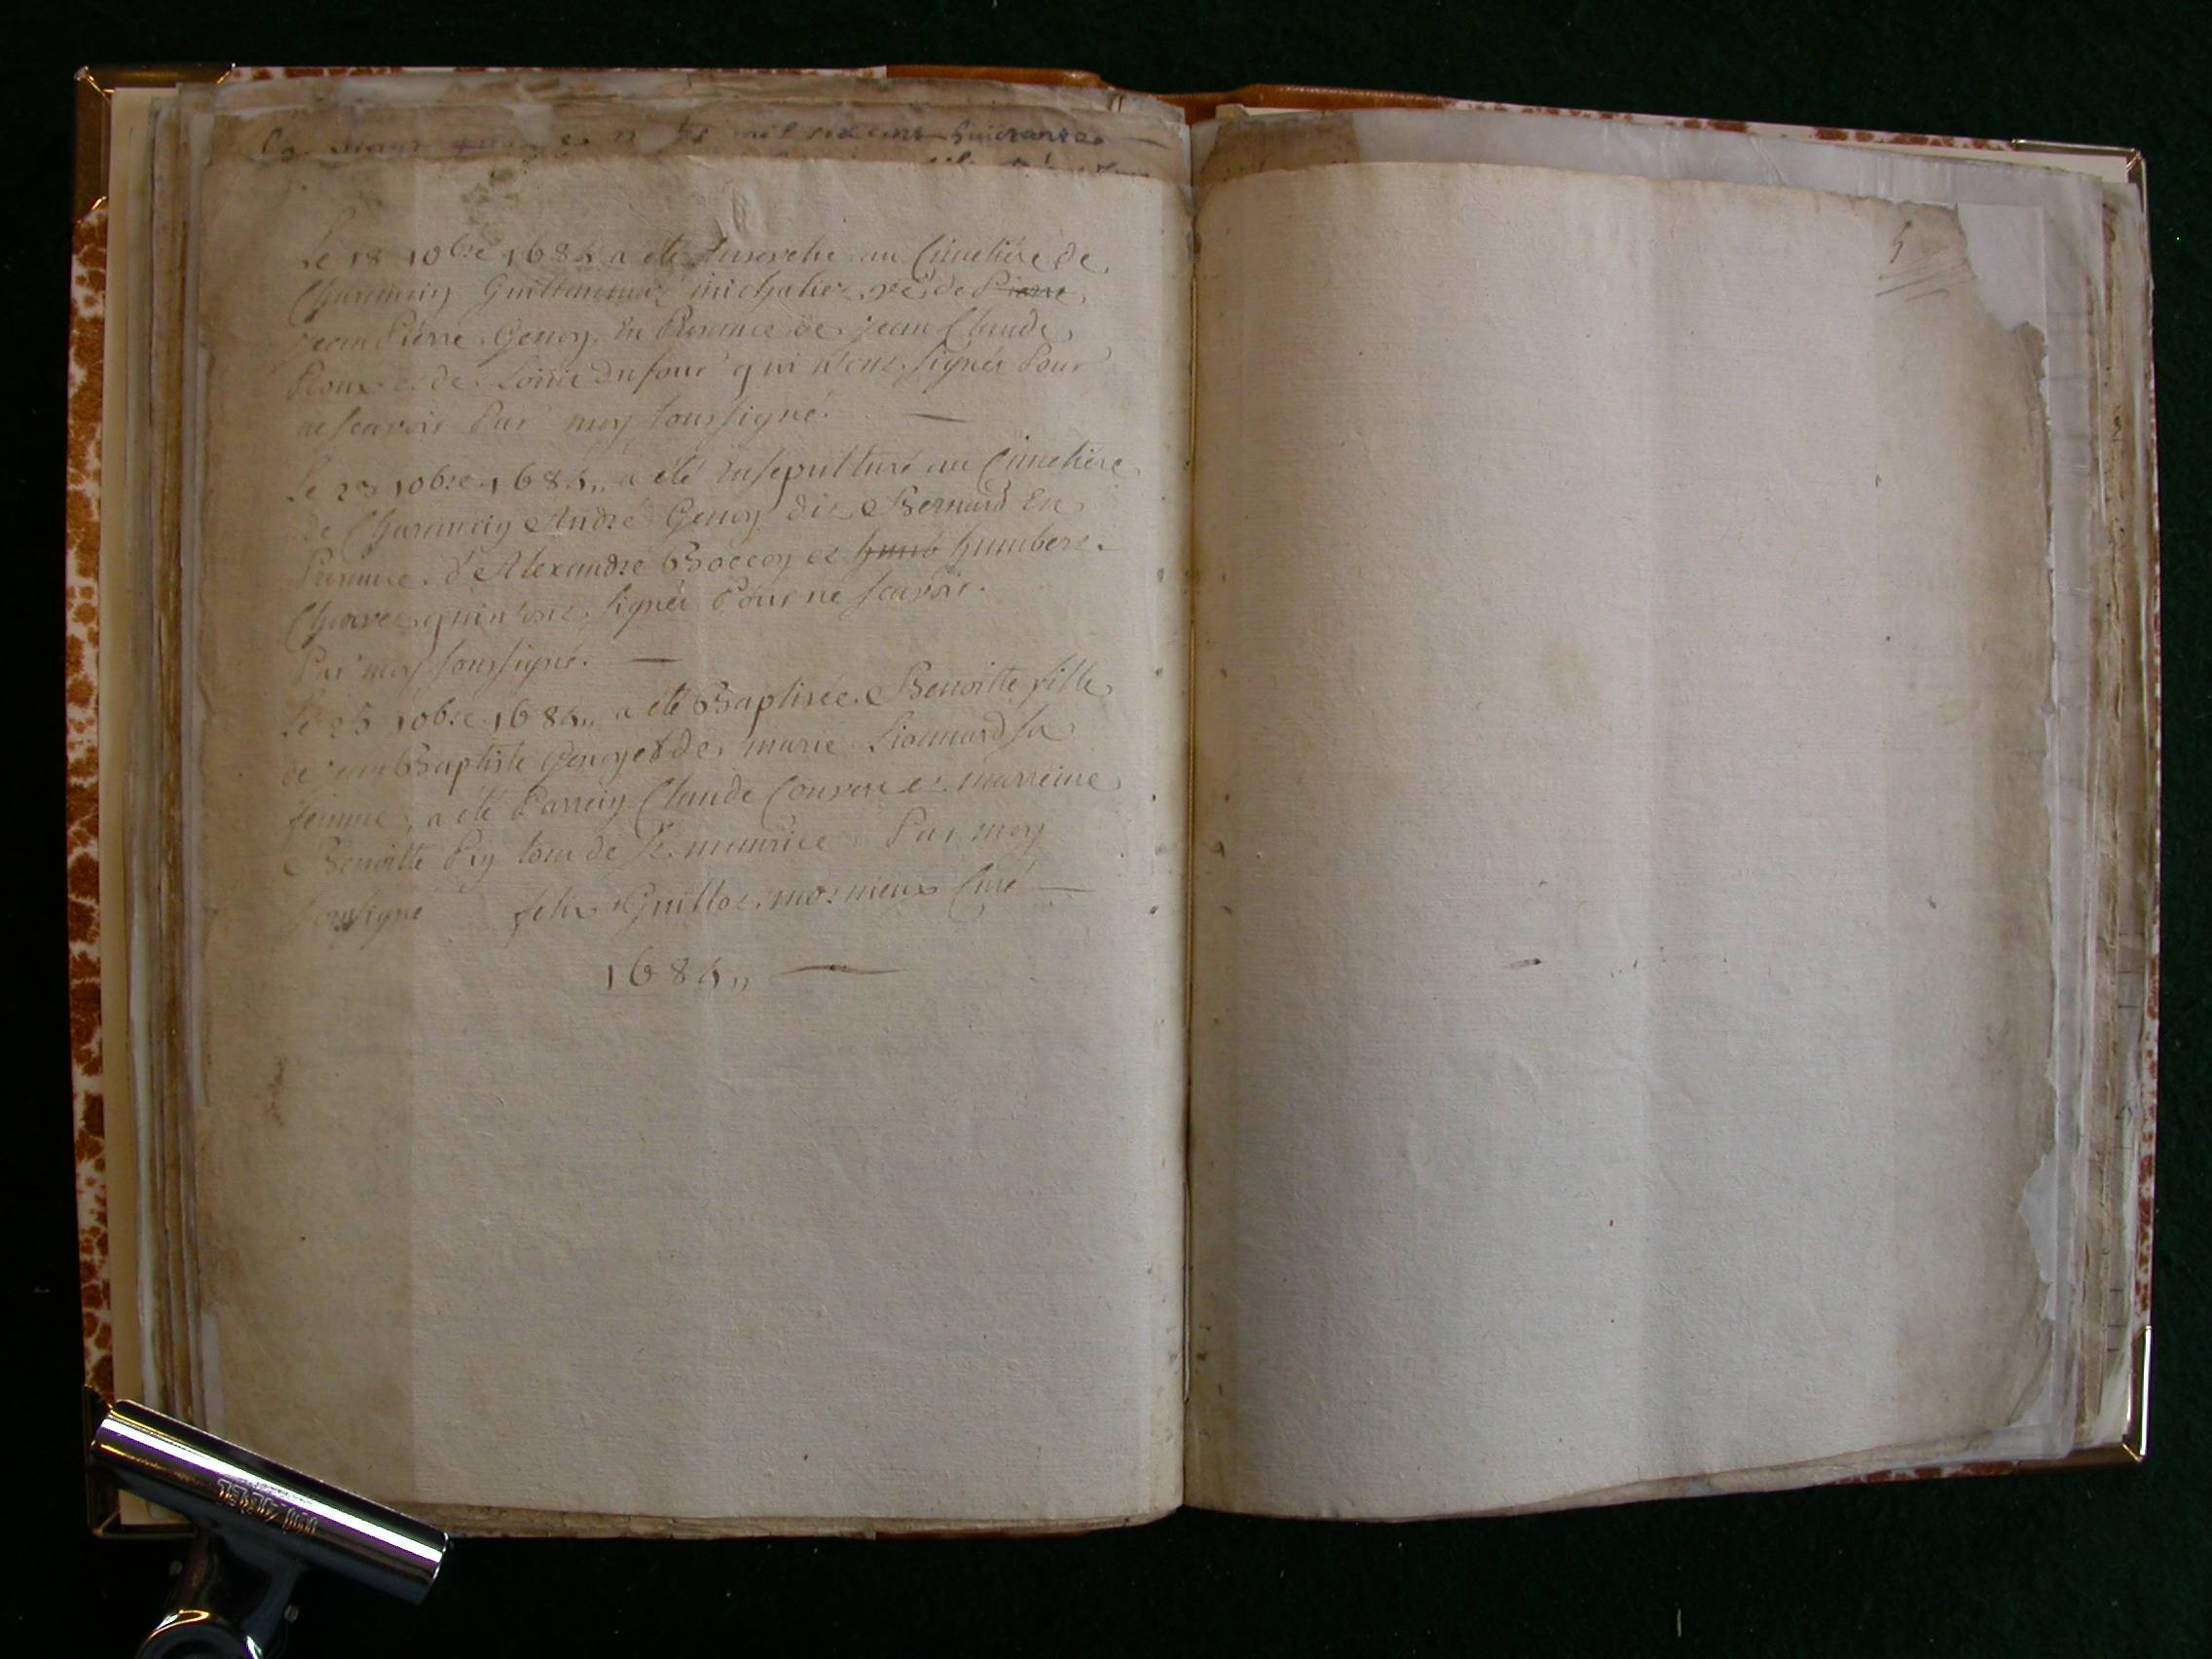 mil six cens huictante
Le 18 10bre 1684 a été Ensevelie au Cimetière de
Charancin Guillauma michalier veˢ de Pierre
jean Pierre Genoy En Presence de jean Claude
Roux et de Loüis dufour qui n'ont signés Pour
ne scavoir Par moy soussigné.
Le 23 10bre 1684,, a été Ensepulturé au Cimetière
de Charancin André Genoy dit Bernard En
Presence d'Alexandre Boccon et humb humbert
qui n'ont signés Pour ne scavoir.
Par moy soussigné.
Le 25 10bre 1684,, a été Baptisée Benoitte fille
de jean Baptiste Genoy et de marie Lionnard sa
femme, a été Parrein Claude Convert et marreine
Benoitte de St. maurice Par moy
soussigné felix Guillot mornieux Curé
1684,,
5